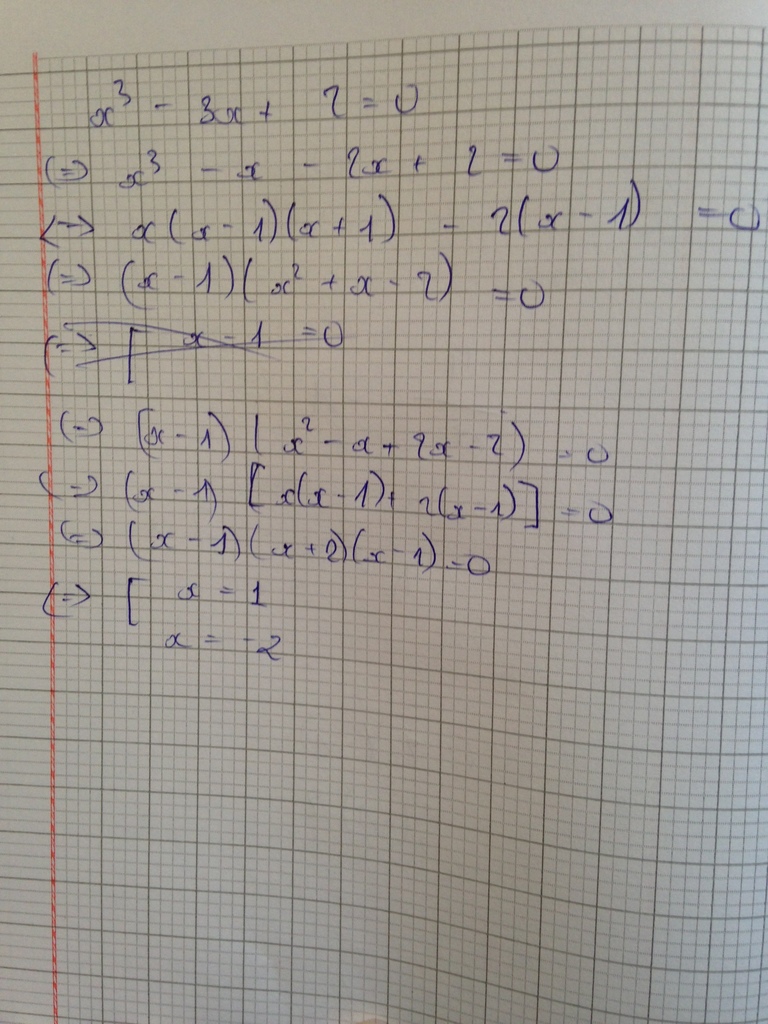 x³ - 3x + 2 = 0
(=) x³ - x - 2x + 2 = 0
<=> x(x - 1)(x + 1) - 2(x - 1) = 0
(=) (x - 1)(x² + x - 2) = 0
(=) [ x - 1 = 0
(=) (x - 1)(x² - x + 2x - 2) = 0
(=) (x - 1) [x(x - 1) + 2(x - 1)] = 0
(=) (x - 1)(x + 2)(x - 1) = 0
(=) [ x = 1
x = -2